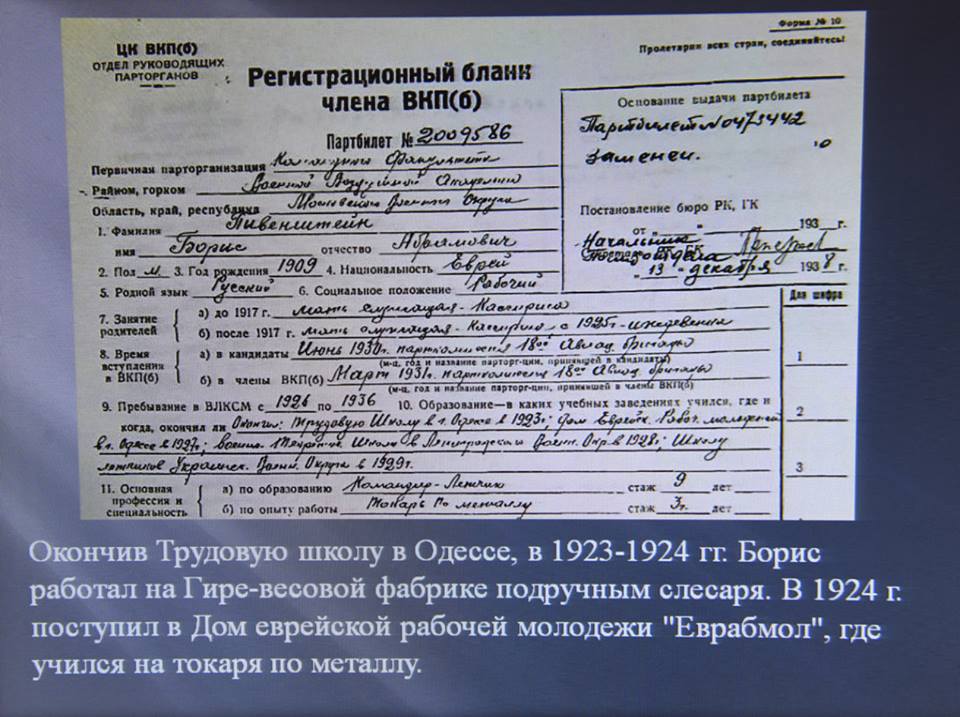 Форма № 10
ЦК ВКП(б)
ОТДЕЛ РУКОВОДЯЩИХ
ПАРТОРГАНОВ
Пролетарии всех стран, соединяйтесь!
Регистрационный бланк
члена ВКП(б)
Партбилет № 2009586
Основание выдачи партбилета
Партбилет № 0473442
заменен.
Первичная парторганизация Командный Факультет
Райком, горком Военной Воздушной Академии
Область, край, республика Московского Военного Округа
Постановление бюро РК, ГК
от 193 г.
Начальник
13 декабря 1938 г.
1. Фамилия Пивенштейн
имя Борис отчество Абрамович
2. Пол м. 3. Год рождения 1909 4. Национальность Еврей
5. Родной язык Русский 6. Социальное положение Рабочий
Для шифра
7. Занятие родителей
а) до 1917 г. мать служащая - Кассирша
б) после 1917 г. мать служащая - Кассирша с 1925 г. - иждевенка
8. Время вступления в ВКП(б)
а) в кандидаты Июнь 1930 г. парткомиссия 18ой Авиац. бригады
(м-ц, год и название парторг-ции, принявшей в кандидаты)
1
б) в члены ВКП(б) Март 1931 г. парткомиссия 18ой Авиац. бригады
(м-ц, год и название парторг-ции, принявшей в члены ВКП(б))
9. Пребывание в ВЛКСМ с 1926 по 1936 10. Образование—в каких учебных заведениях учился, где и
2
когда, окончил ли Окончил: Трудовую Школу в г. Одессе в 1923 г; Дом Еврейск. Рабоч. молодежи
в г. Одессе в 1927 г; Школу в Ленинградском Воен. Окр. в 1928 г; Школу
летчиков Украинск. Воен. Округа в 1929 г.
3
11. Основная профессия и специальность
а) по образованию Командир-Летчик стаж 9 лет
б) по опыту работы Токарь по металлу стаж 3 г. лет
Окончив Трудовую школу в Одессе, в 1923-1924 гг. Борис
работал на Гире-весовой фабрике подручным слесаря. В 1924 г.
поступил в Дом еврейской рабочей молодежи "Еврабмол", где
учился на токаря по металлу.